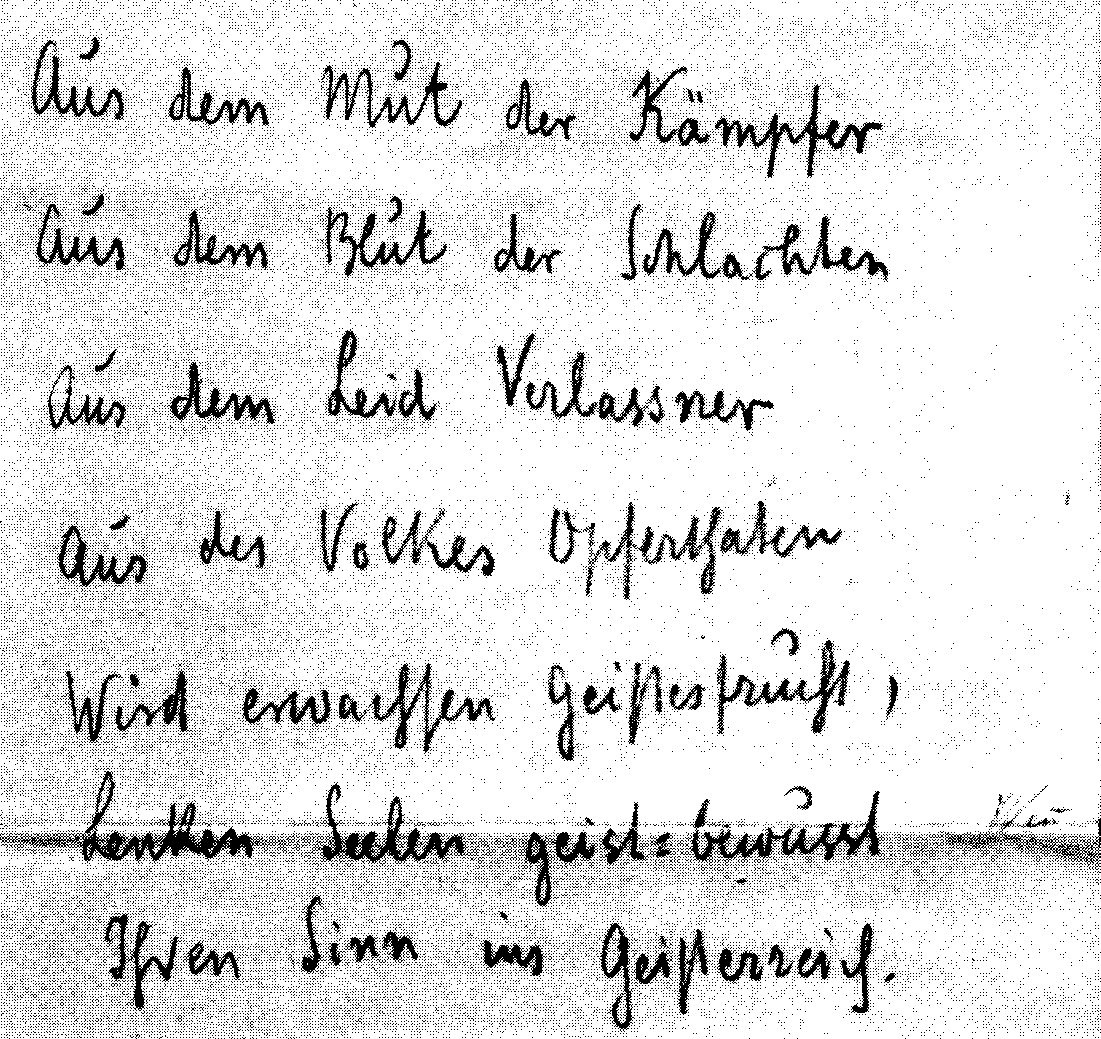 Aus dem Mut der Kämpfer
Aus dem Blut der Schlachten
Aus dem Leid Verlassner
Aus des Volkes Opferthaten
Wird erwachsen Geistesfrucht,
Lenken Seelen geist=bewusst
Ihren Sinn ins Geisterreich.